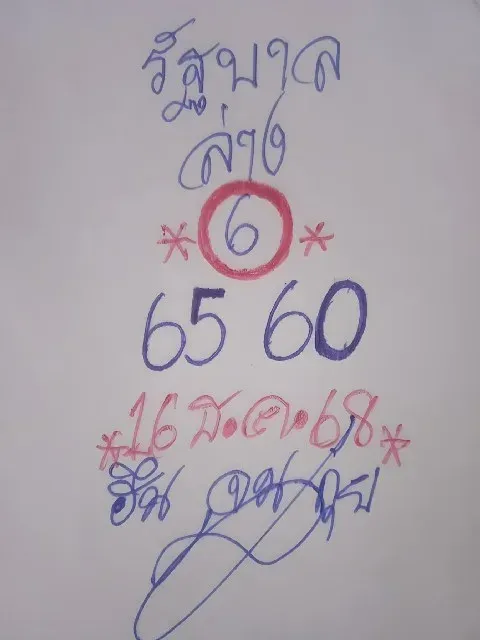 รัฐบาล
ล่าง
* 6 *
65 60
*16 มี.ค.68*